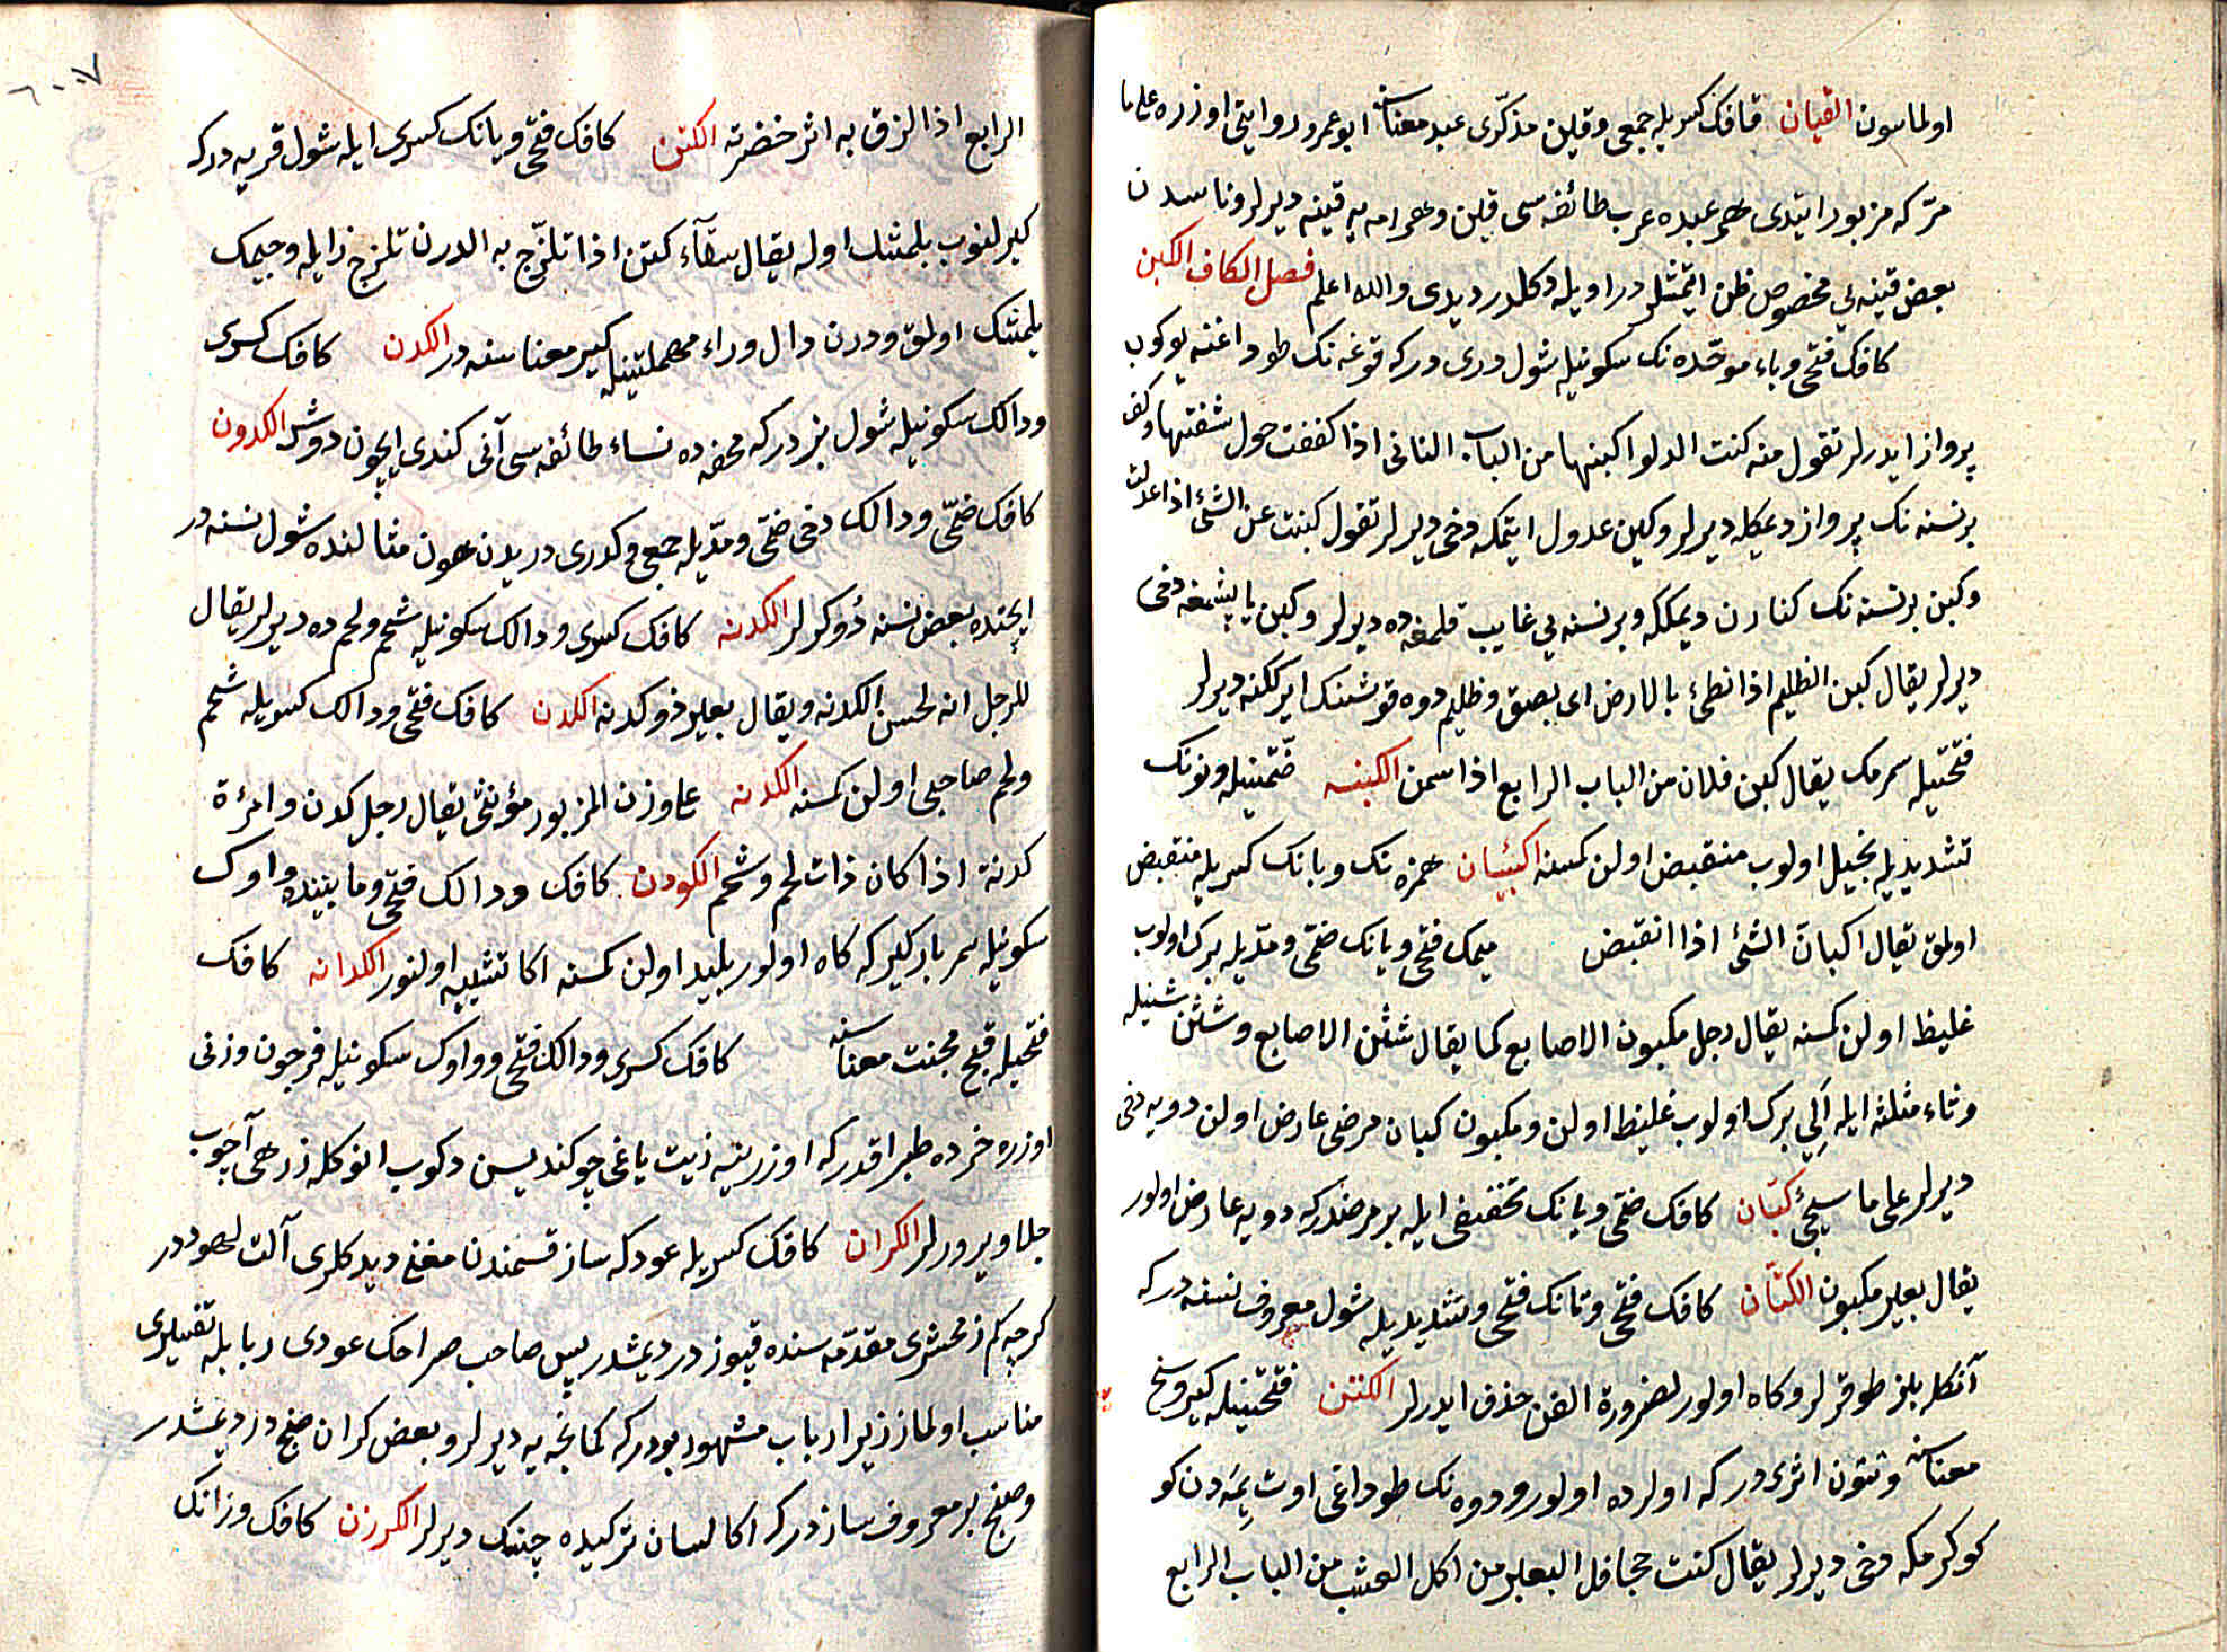 اولماسون القیان قافك كسریله جمعی و قین مذكری عبد معناسنه ابو عمرو روایتی اوزره علی ما
مر كه مزبور ایتدی هر عبده عرب طائفه سی قین و هر امه یه قینه دیرلر و ناسدن
بعض قینه یی مخصوص ظن ایتمشلردر اویله دكلدر دیدی والله اعلم فصل الكاف الكبن
كافك فتحی و باء موحده نك سكونیله شول دری دركه قوغه نك طوداغنه بوكوب
پرواز ایدرلر تقول منه كبنت الدلو اكبنها من الباب الثانی اذا كففت حول شفتها و كف
بر نسنه نك پرواز دیمكله دیرلر و كبن عدول ایتمكه دخی دیرلر تقول كبنت عن الشئ اذا عدلت
و كبن بر نسنه نك كنارن دیمككه و بر نسنه یی غایب قلمغه ده دیرلر و كبن یاپشمغه دخی
دیرلر یقال كبن الظلیم اذا لطئ بالارض ای یصق و ظلیم دوه قوشنك ایرككنه دیرلر
فتحتیله سمرمك یقال كبن فلان من الباب الرابع اذا سمن الكبنه ضمتینیله و نونك
تشدیدیله بخیل اولوب منقبض اولن كمسنه اكبئیان همزه نك و بانك كسریله منقبض
اولمق یقال اكبان الشئ اذا انقبض میمك فتحی و بانك ضمی و مدیله برك اولوب
غلیظ اولن كمسنه یقال رجل مكبون الاصابع كما یقال شثن الاصابع و شثن شینیله
و ثاء مثلثه ایله الی برك اولوب غلیظ اولن و مكبون كبان مرضی عارض اولن دویه دخی
دیرلر علی ما سیجئ كبان كافك ضمی و بانك تخفیفی ایله بر مرضدركه دویه عارض اولور
یقال بعیر مكبون الكتان كافك فتحی و تانك فتحی و تشدیدیله شول معروف نسنه دركه
آنكله بز طوقرلر و كاه اولور لضرورة الفن حذف ایدرلر الكتن فتحتینیله كیر و وسخ
معناسنه و تتون اثری دركه اولرده اولور و دوه نك طوداغی اوت یمه دن كو
كوكرمكه دخی دیرلر یقال كتنت جحافل البعیر من اكل العشب من الباب الرابع
٦٠٠٧
الرابع اذا لزق به اثر خضرته الكتن كافك فتحی و یانك كسری ایله شول قریه دركه
كیرلنوب یلمشك اوله یقال سقاء كتن اذا تلزج به الدرن تلزج زایله و جیمك
یلمشك اولمق و درن دال و راء مهملتینیله كیر معناسنه در الكدن كافك كسری
و دالك سكونیله شول بزدركه محفه ده نساء طائفه سی آنی كندی ایچون دوشر الكدون
كافك ضمی و دالك دخی ضمی و مدیله جمعی و كدری دریدن هون مثالنده شول نسنه در
ایچنده بعض نسنه دوكرلر الكدنه كافك كسری و دالك سكونیله شحم و لحم ده دیرلر یقال
للرجل انه لحسن الكدنه و یقال بعیر ذو كدنه الكدن كافك فتحی و دالك كسریله شحم
و لحم صاحبی اولن كمسنه الكدنه علی وزن المزبور مؤنثی یقال رجل كدن و امرٔة
كدنة اذا كان ذات لحم و شحم الكودن كافك و دالك فتحی و مابیننده واوك
سكونیله سمر باركیركه كاه اولور بلید اولن كمسنه اكا تشبیه اولنور الكدانه كافك
فتحیله قبح مجنت معناسنه كافك كسری و دالك فتحی و واوك سكونیله فرجون وزنی
اوزره خرده طپراقدركه اوزرینه زیت یاغی چوكندیسن دكوب انوكله زرهی آچوب
جلا ویرورلر الكران كافك كسریله عودكه ساز قسمندن مغنی دیدكلری آلت لهودر
كرچه كم زمخشری مقدمه سنده قپوز در دیمشدر پس صاحب صراحك عودی ربابله تفسیری
مناسب اولماز زیرا رباب مشهور بودركه كمانچه یه دیرلر و بعض كران صنج در دیمشدر
و صنج بر معروف سازدركه اكا لسان تركیده چنك دیرلر الكرزن كافك و زانك